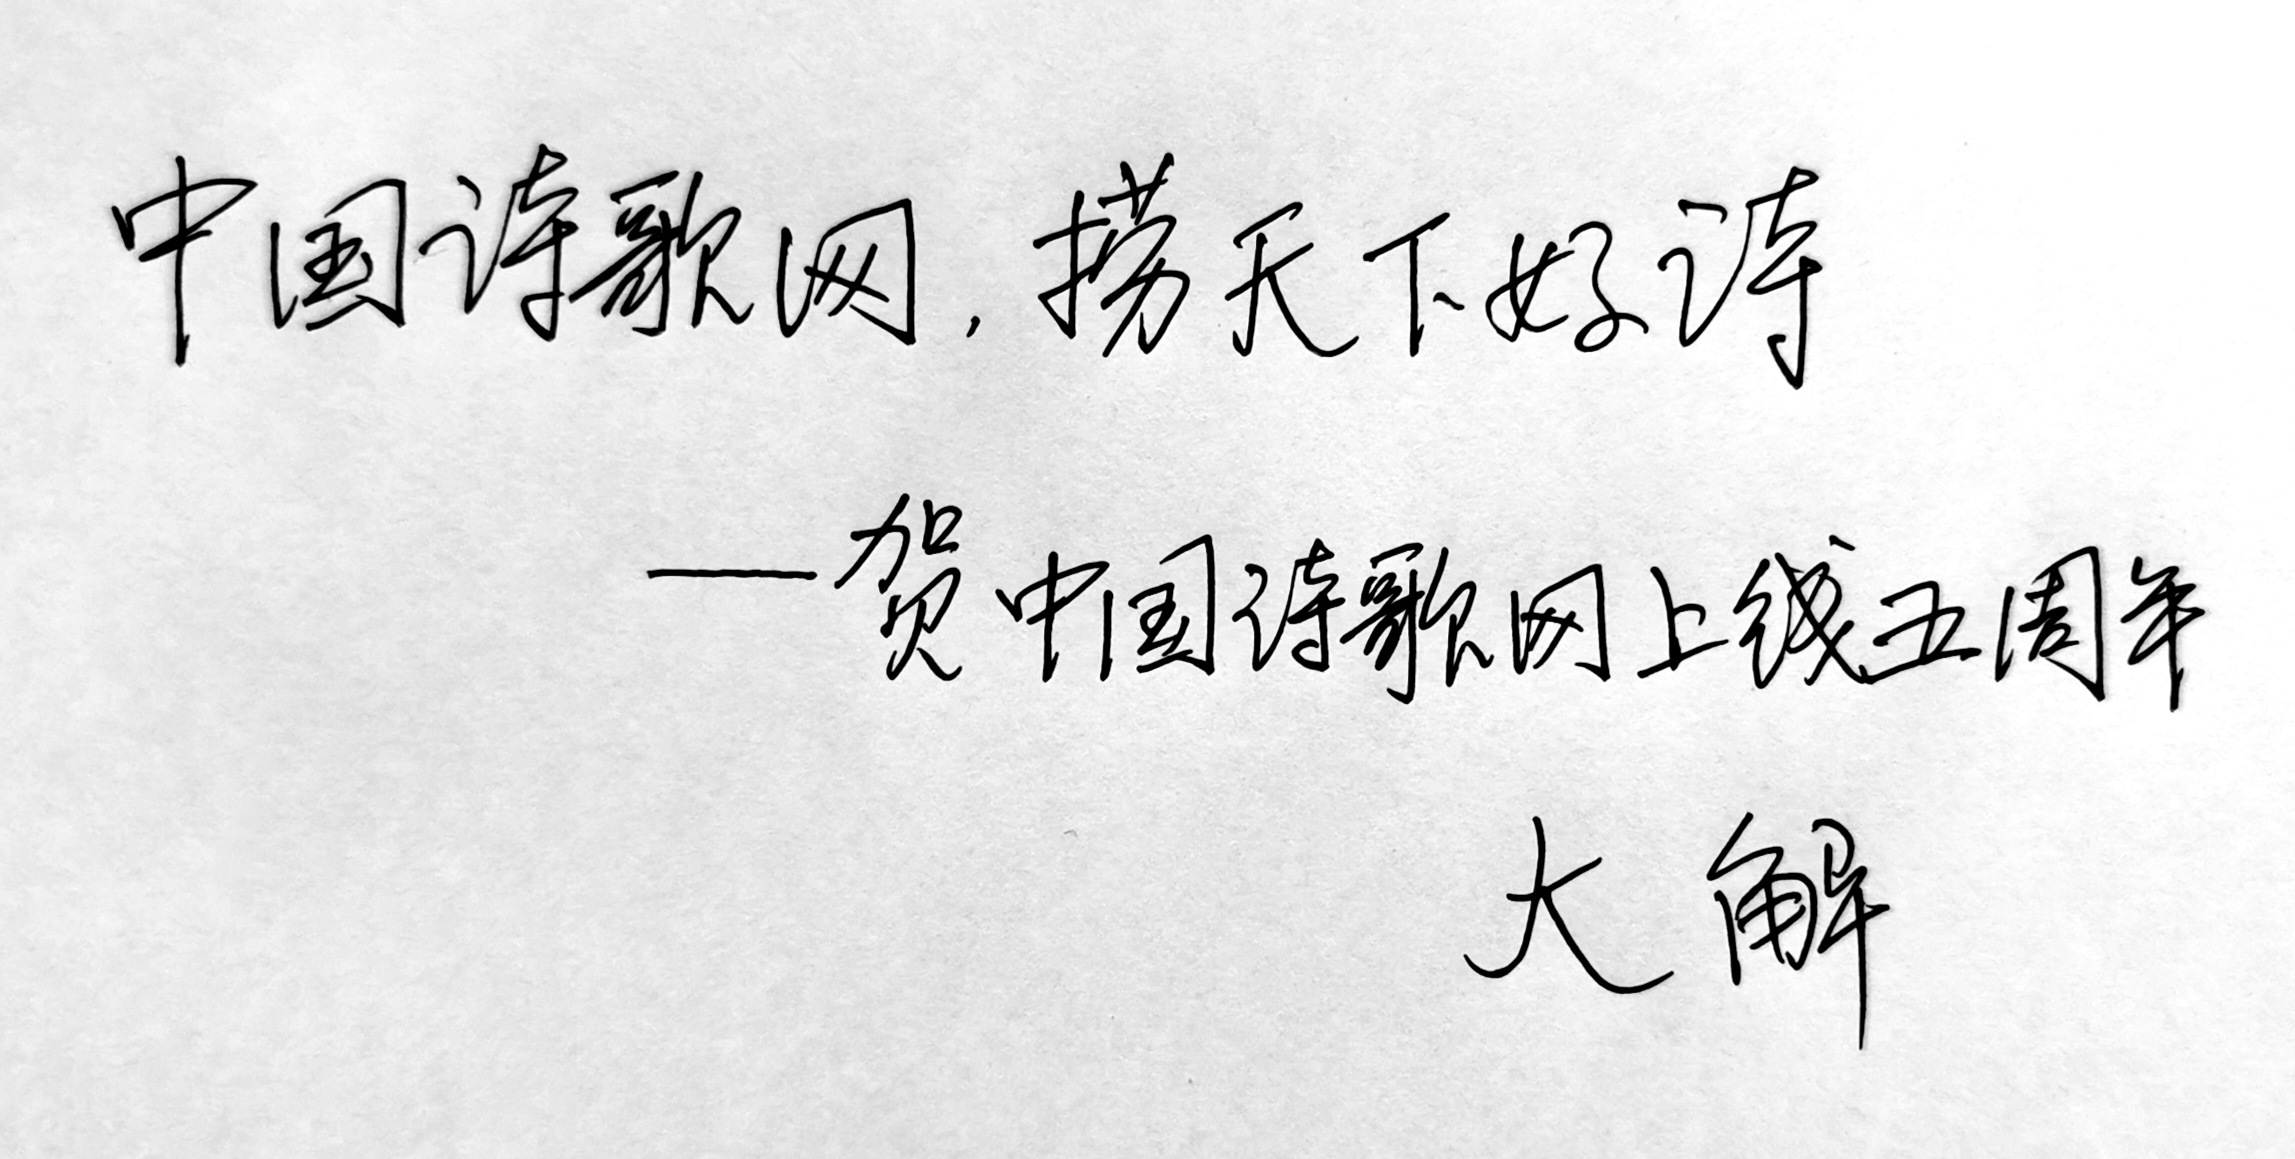 中国诗歌网,捞天下好诗
——贺中国诗歌网上线五周年
大解